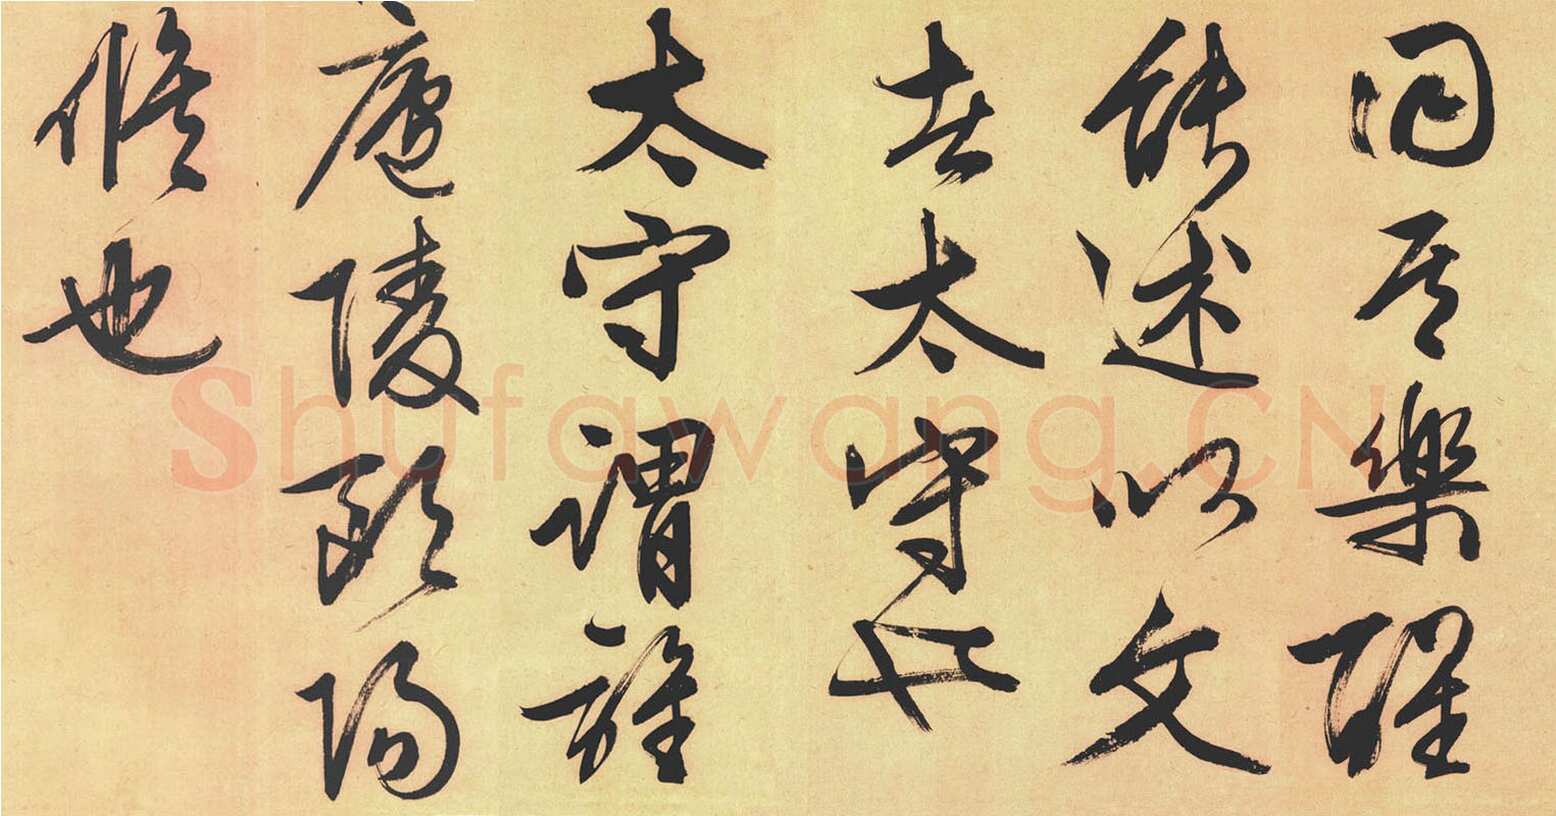 同其樂醒
能述以文
者太守也
太守謂誰
廬陵歐陽
脩也
Shufawang.CN